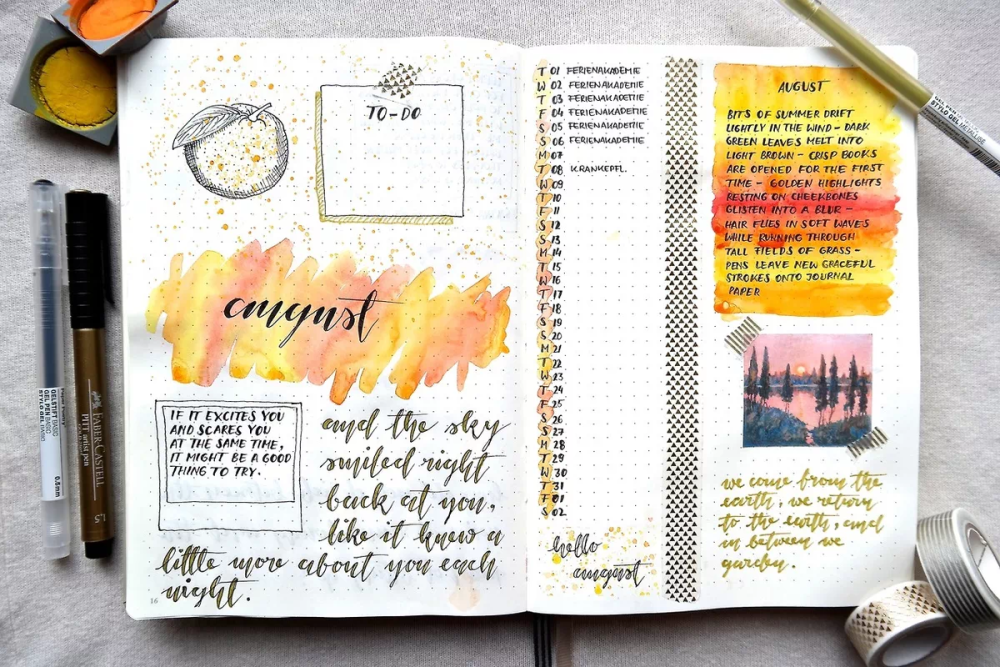 TO-DO
august
IF IT EXCITES YOU
AND SCARES YOU
AT THE SAME TIME,
IT MIGHT BE A GOOD
THING TO TRY.
and the sky
smiled right
back at you,
like it knew a
little more about you each
night.
16
T 01 FERIENAKADEMIE
W 02 FERIENAKADEMIE
T 03 FERIENAKADEMIE
F 04 FERIENAKADEMIE
S 05 FERIENAKADEMIE
S 06 FERIENAKADEMIE
M 07
T 08 KRANKEPFL.
W 09
T 10
F 11
S 12
S 13
M 14
T 15
W 16
T 17
F 18
S 19
S 20
M 21
T 22
W 23
T 24
F 25
S 26
S 27
M 28
T 29
W 30
T 31
F 01
S 02
hello
august
AUGUST
BITS OF SUMMER DRIFT
LIGHTLY IN THE WIND - DARK
GREEN LEAVES MELT INTO
LIGHT BROWN - CRISP BOOKS
ARE OPENED FOR THE FIRST
TIME - GOLDEN HIGHLIGHTS
RESTING ON CHEEKBONES
GLISTEN INTO A BLUR -
HAIR FLIES IN SOFT WAVES
WHILE RUNNING THROUGH
TALL FIELDS OF GRASS -
PENS LEAVE NEW GRACEFUL
STROKES ONTO JOURNAL
PAPER
we come from the
earth, we return
to the earth, and
in between we
garden.
GELSTIFT BASIC
GEL PEN BASIC
STYLO GEL BASIC
0.5mm
FABER-CASTELL
PITT artist pen
1.5